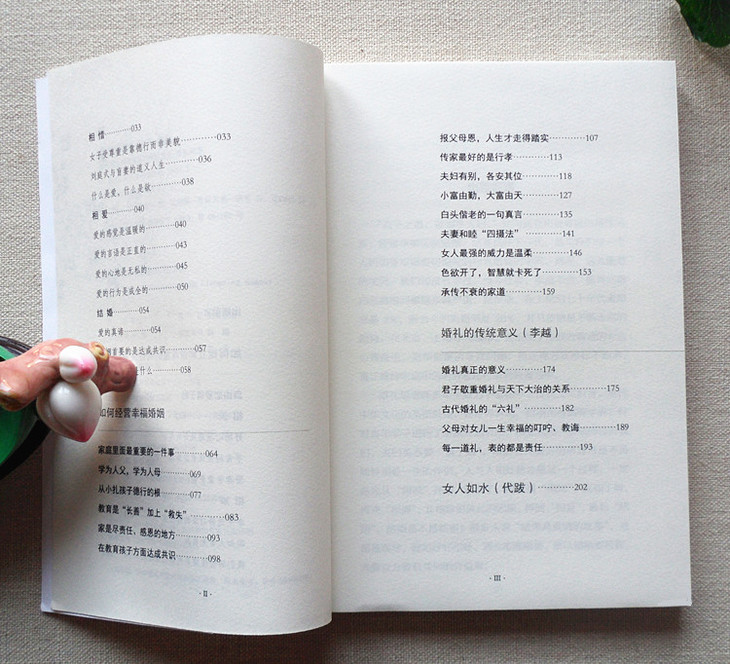 相 惜…………033
女子受尊重是靠德行而非美貌…………033
刘庭式与盲妻的道义人生…………036
什么是爱、什么是欲…………038
相 爱…………040
爱的感觉是温暖的…………040
爱的言语是正直的…………043
爱的心地是无私的…………045
爱的行为是成全的…………050
结 婚…………054
爱的真谛…………054
重要的是达成共识…………057
什么…………058
如何经营幸福婚姻
家庭里面最重要的一件事…………064
学为人父，学为人母…………069
从小扎孩子德行的根…………077
教育是“长善”加上“救失”…………083
家是尽责任、感恩的地方…………093
在教育孩子方面达成共识…………098
· II ·
报父母恩，人生才走得踏实…………107
传家最好的是行孝…………113
夫妇有别，各安其位…………118
小富由勤，大富由天…………127
白头偕老的一句真言…………135
夫妻和睦“四摄法”…………141
女人最强的威力是温柔…………146
色欲开了，智慧就卡死了…………153
承传不衰的家道…………159
婚礼的传统意义（李越）
婚礼真正的意义…………174
君子敬重婚礼与天下大治的关系…………175
古代婚礼的“六礼”…………182
父母对女儿一生幸福的叮咛、教诲…………189
每一道礼，表的都是责任…………193
女人如水（代跋）…………202
· III ·